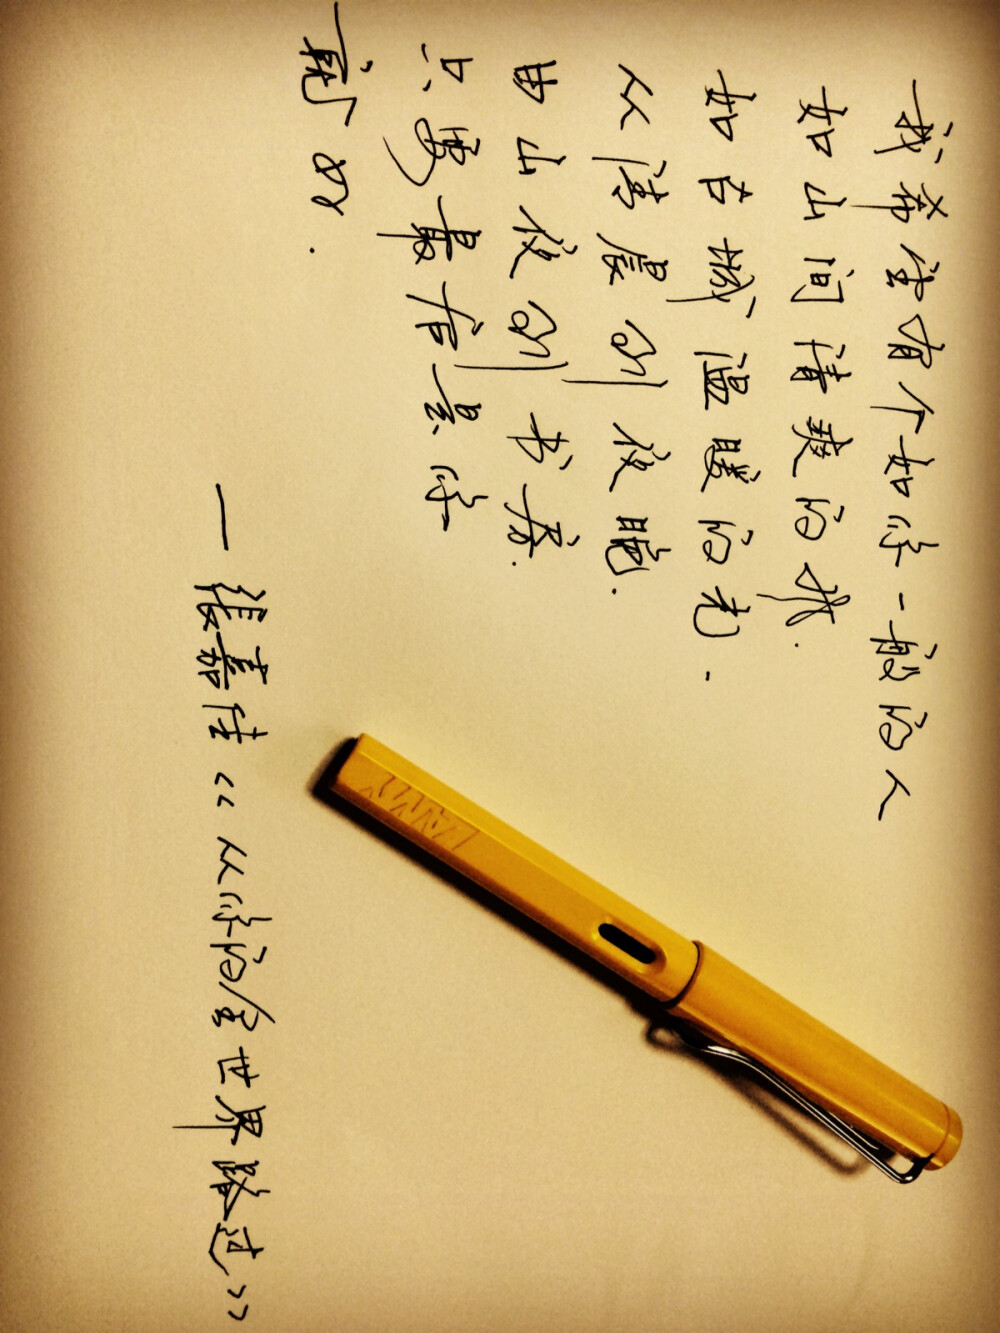 我希望有个如你一般的人
如山间清爽的风.
如古城温暖的光.
从清晨到夜晚.
由山夜到书房.
只要最后是你
就好.
—张嘉佳《从你的全世界路过》
LAMY